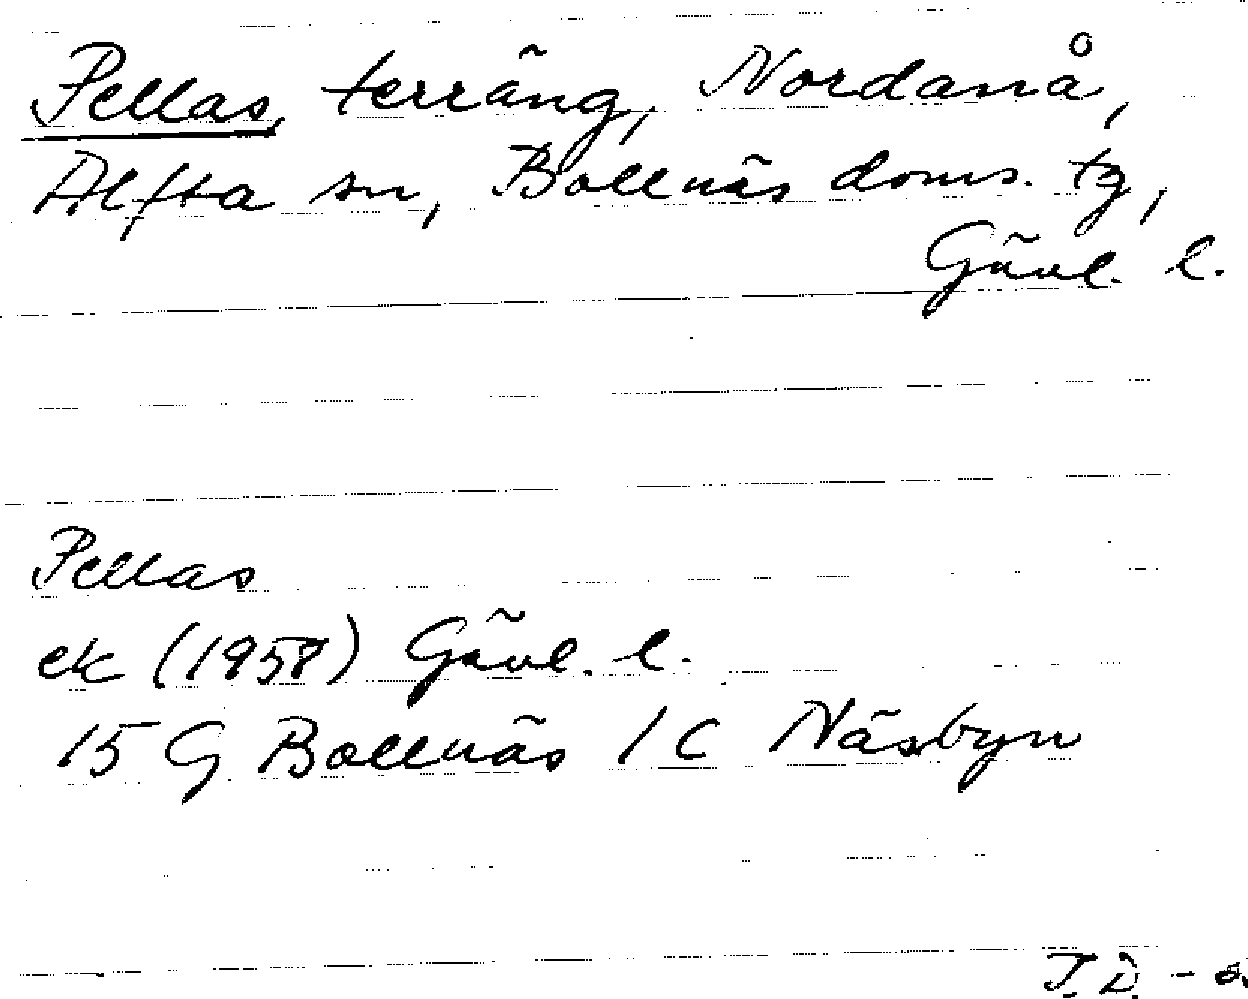 Pellas, terräng, Nordanå,
Alfta sn, Bollnäs doms. tg,
Gävl. l.
Pellas
ek (1958) Gävl. l.
15 G Bollnäs 1 C Näsbyn
J. D.